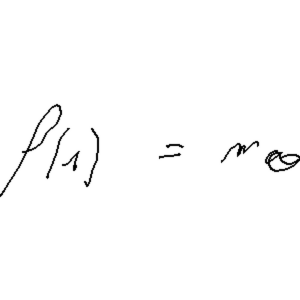 f(1) = m∞